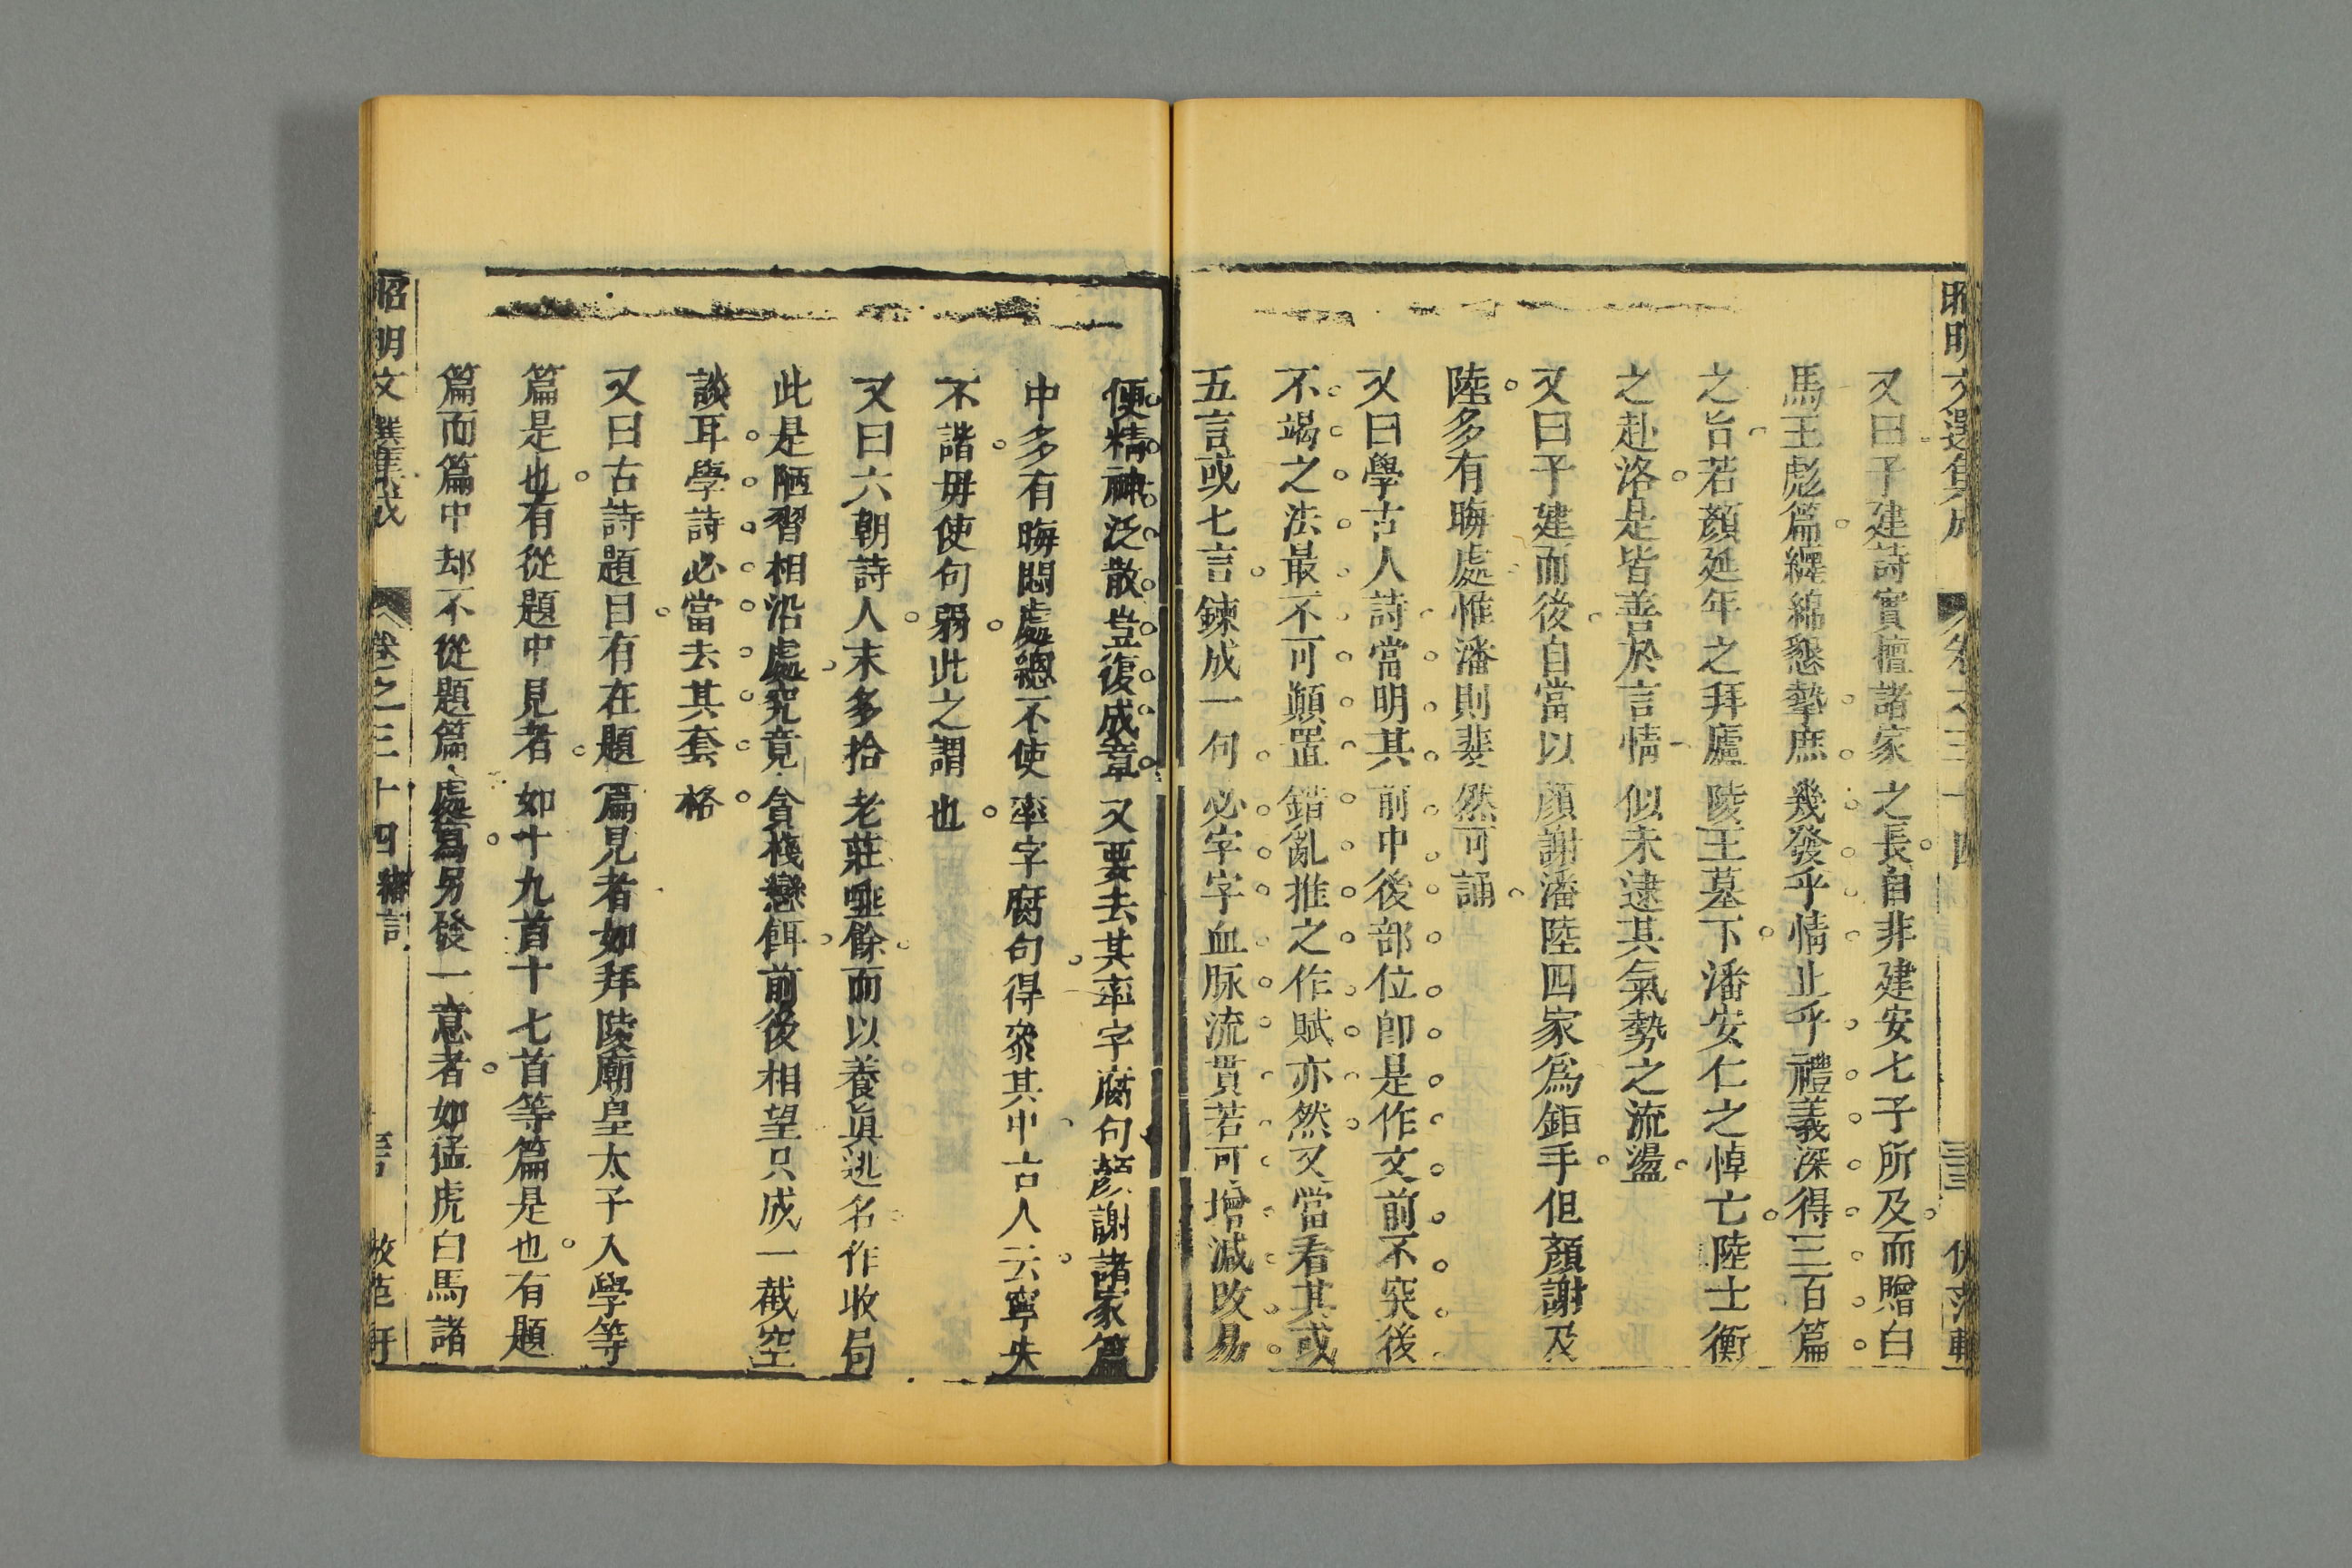 又曰子建詩實檀諸家之長自非建安七子所及而贈白
馬王彪篇纏綿懇摯庶幾發乎情止乎禮義深得三百篇
之旨若顏延年之拜廬陵王墓下潘安仁之悼亡陸士衡
之赴洛是皆善於言情似未逮其氣勢之流盪
又曰子建而後自當以顏謝潘陸四家爲鉅手但顏謝及
陸多有晦處惟潘則斐然可誦
又曰學古人詩當明其前中後部位卽是作文前不突後
不竭之法最不可顚置錯亂推之作賦亦然又當看其或
五言或七言鍊成一句必字字血脉流貫若可增減改易
便精神泛散豈復成章又要去其率字腐句顏謝諸家篇
中多有晦悶處總不使率字腐句得衆其中古人云寧失
不諧毋使句弱此之謂也
又曰六朝詩人末多拾老莊唾餘而以養眞逃名作收局
此是陋習相沿處究竟貪棧戀餌前後相望只成一截空
談耳學詩必當去其套格
又曰古詩題目有在題篇見者如拜陵廟皇太子入學等
篇是也有從題中見者如十九首十七首等篇是也有題
篇而篇中却不從題篇處寫另發一意者如猛虎白馬諸
昭明文選集成 卷之三十四